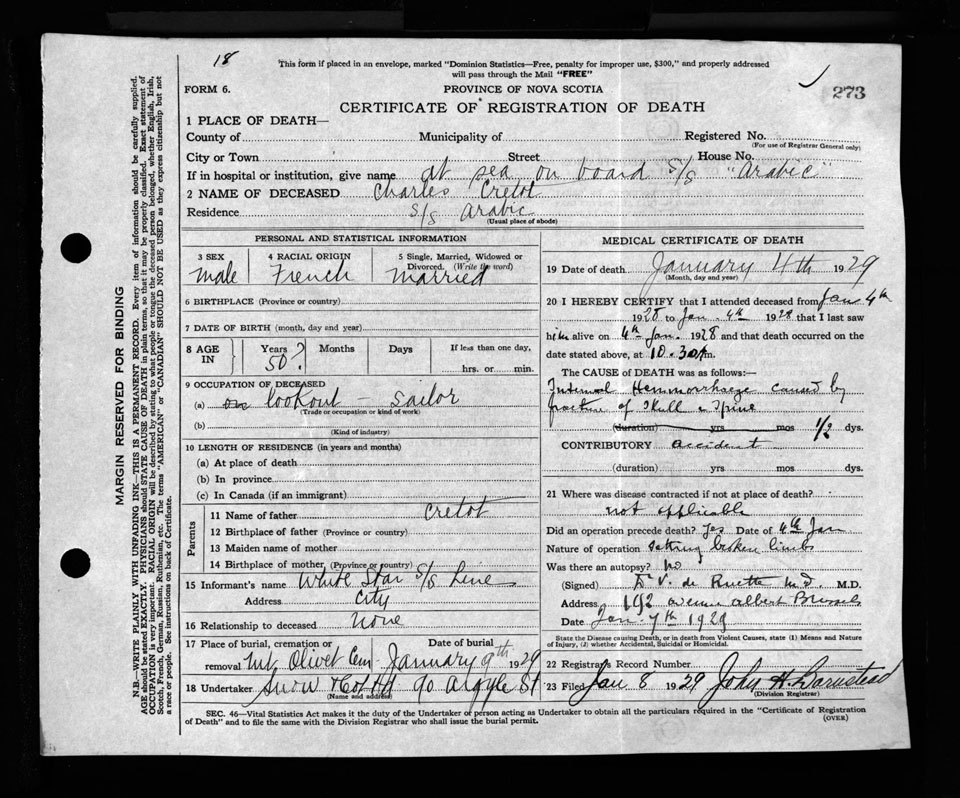 18
This form if placed in an envelope, marked "Dominion Statistics—Free, penalty for improper use, $300," and properly addressed
will pass through the Mail "FREE"
FORM 6.
PROVINCE OF NOVA SCOTIA
273
CERTIFICATE OF REGISTRATION OF DEATH
1 PLACE OF DEATH—
County of Municipality of Registered No.
(For use of Registrar General only)
City or Town Street House No.
If in hospital or institution, give name at sea on board s/s "Arabic"
2 NAME OF DECEASED Charles Cretot
Residence s/s Arabic
(Usual place of abode)
PERSONAL AND STATISTICAL INFORMATION
3 SEX 4 RACIAL ORIGIN 5 Single, Married, Widowed or
Divorced. (Write the word)
Male French Married
6 BIRTHPLACE (Province or country)
7 DATE OF BIRTH (month, day and year)
8 AGE IN Years Months Days If less than one day,
50? hrs. or min.
9 OCCUPATION OF DECEASED
(a) on lookout - sailor
(Trade or occupation or kind of work)
(b)
(Kind of industry)
10 LENGTH OF RESIDENCE (in years and months)
(a) At place of death
(b) In province
(c) In Canada (if an immigrant)
Parents
11 Name of father Cretot
12 Birthplace of father (Province or country)
13 Maiden name of mother
14 Birthplace of mother (Province or country)
15 Informant's name White Star S/S Line
Address City
16 Relationship to deceased None
17 Place of burial, cremation or Date of burial
removal Mt. Olivet Cem January 9th 1929
18 Undertaker Snow & Co Ltd 90 Argyle St
(Name and address)
MEDICAL CERTIFICATE OF DEATH
19 Date of death January 4th 1929
(Month, day and year)
20 I HEREBY CERTIFY that I attended deceased from Jan 4th
1928 to Jan. 4th 1928 that I last saw
him alive on 4th Jan. 1928 and that death occurred on the
date stated above, at 10.30 m.
The CAUSE OF DEATH was as follows:
Internal Hemmorrhaege caused by
fracture of Skull & Spine
(duration) yrs mos 1/2 dys.
CONTRIBUTORY accident
(duration) yrs mos dys.
21 Where was disease contracted if not at place of death?
not applicable
Did an operation precede death? Yes Date of 4th Jan
Nature of operation setting broken limbs
Was there an autopsy? No
(Signed) V. de Ruette M.D. M.D.
Address 192 avenue Albert Brussels
Date Jan. 7th 1929
State the Disease causing Death, or in death from Violent Causes, state (1) Means and Nature
of Injury, (2) whether Accidental, Suicidal or Homicidal.
22 Registrar's Record Number
23 Filed Jan 8 1929 John H. Barnstead
(Division Registrar)
SEC. 46—Vital Statistics Act makes it the duty of the Undertaker or person acting as Undertaker to obtain all the particulars required in the "Certificate of Registration
of Death" and to file the same with the Division Registrar who shall issue the burial permit.
(OVER)
MARGIN RESERVED FOR BINDING
N.B.—WRITE PLAINLY WITH UNFADING INK—THIS IS A PERMANENT RECORD. Every item of information should be carefully supplied.
AGE should be stated EXACTLY. PHYSICIANS should STATE CAUSE OF DEATH in plain terms, so that it may be properly classified. Exact statement of
OCCUPATION is very important. RACIAL ORIGIN will be described by stating to what people or tongue the deceased person belonged, whether English, Irish,
Scotch, French, German, Russian, Ruthenian, etc. The terms "AMERICAN" or "CANADIAN" SHOULD NOT BE USED as they express citizenship but not
a race or people. See instructions on back of Certificate.